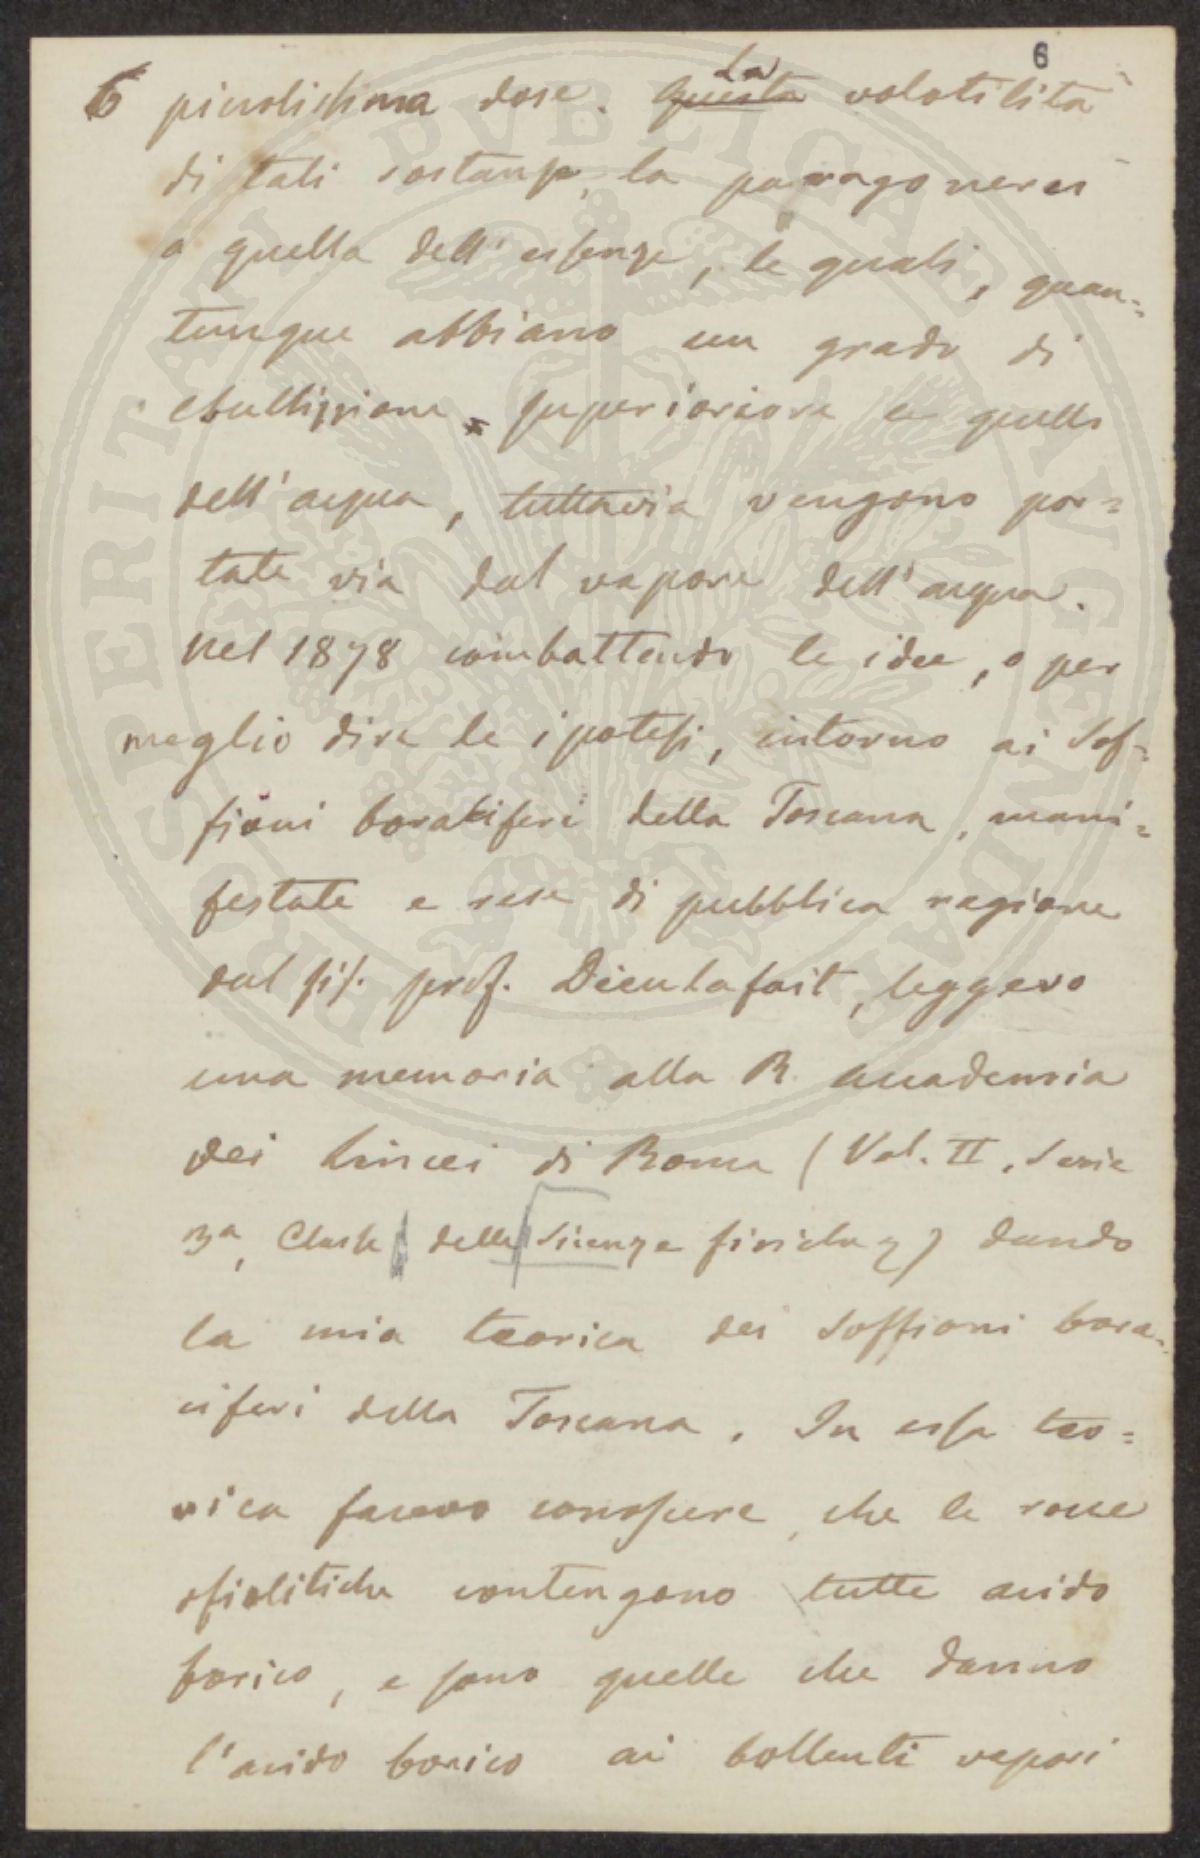 6
6 piccolissima dose. Questa La volatilità
di tali sostanze, la paragonerei
a quella dell'essenze, le quali, quan-
tunque abbiano un grado di
ebullizione superioriore a quello
dell'acqua, tuttavia vengono por=
tate via dal vapore dell'acqua.
Nel 1878 combattendo le idee, o per
meglio dire le ipotesi, intorno ai Sof-
fioni boraciferi della Toscana, mani=
festate e rese di pubblica ragione
dal sig. prof. Dieulafait, leggevo
una memoria alla R. Accademia
dei Lincei di Roma (Vol. II, Serie
3a, Classe delle Scienze fisiche) dando
la mia teorica dei Soffioni bora-
ciferi della Toscana. In essa teo=
rica facevo conoscere, che le rocce
ofiolitiche contengono tutte acido
borico, e sono quelle che danno
l'acido borico ai bollenti vapori
PROSPERITATI PVBLICAE AVGENDAE